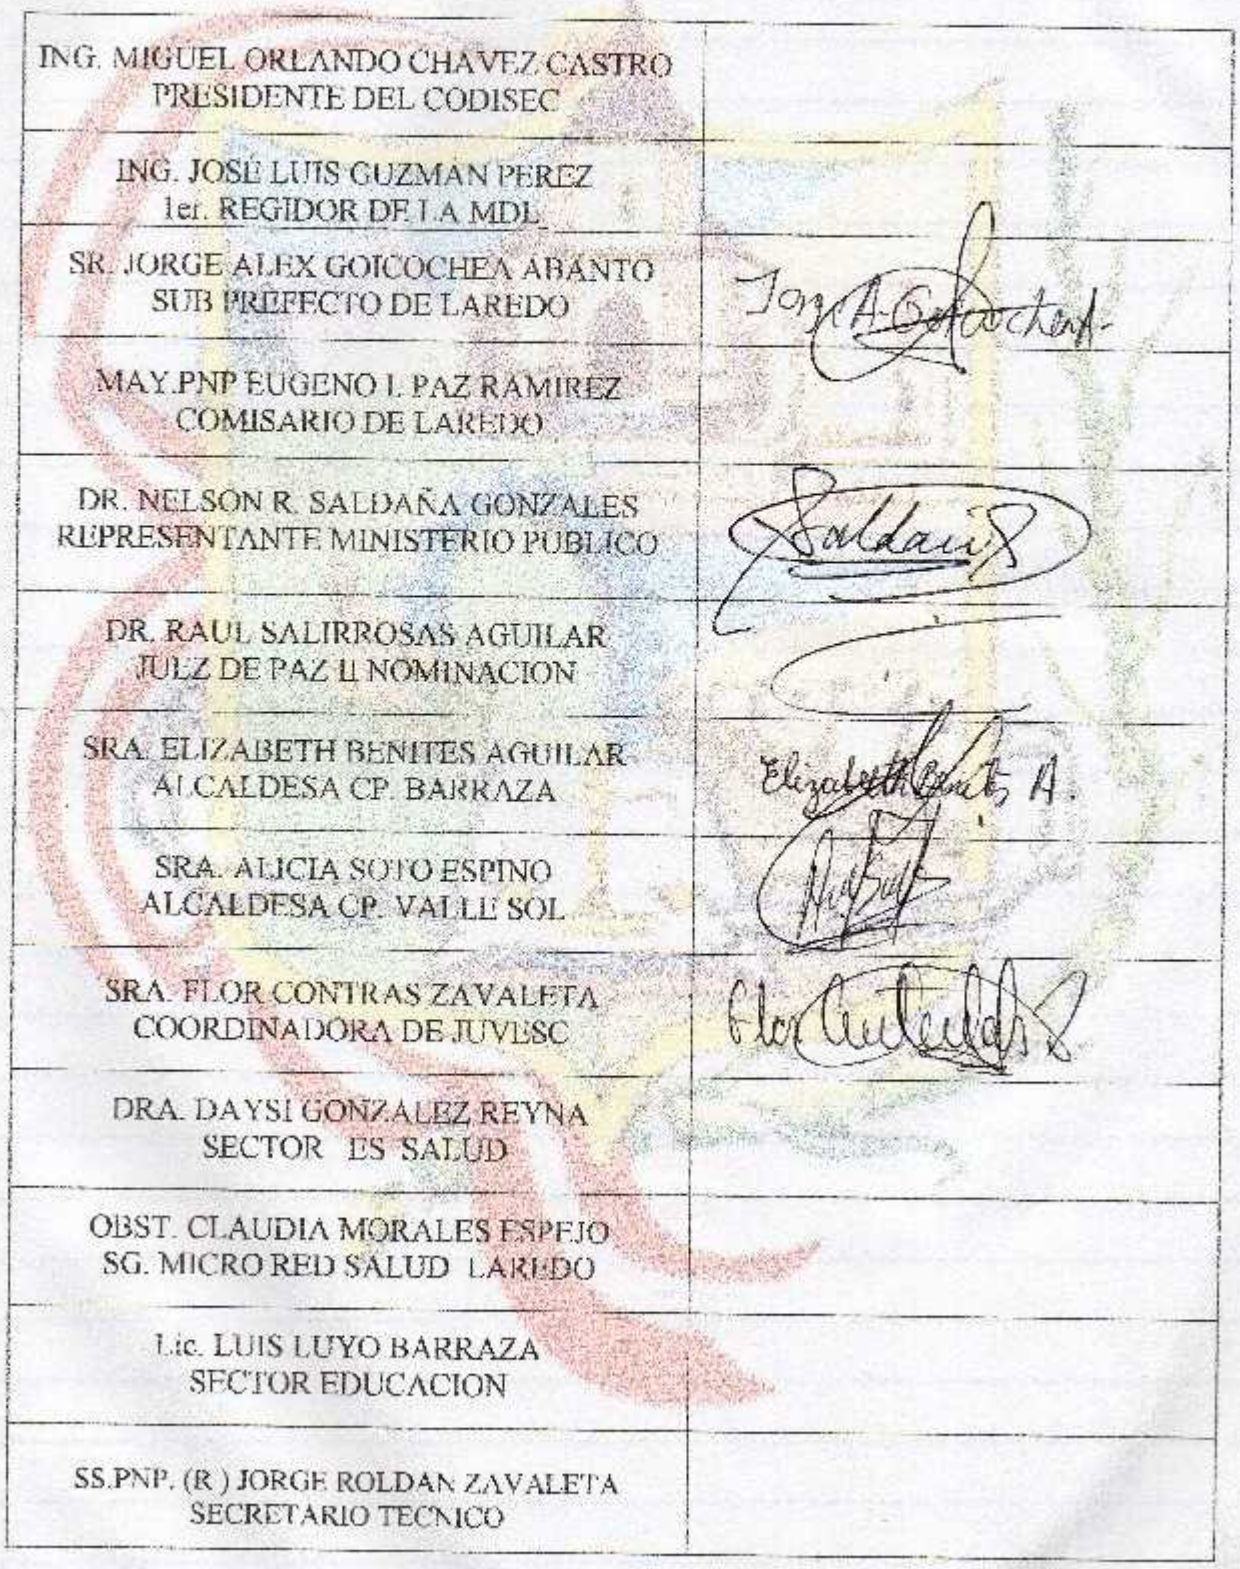 ING. MIGUEL ORLANDO CHAVEZ CASTRO
PRESIDENTE DEL CODISEC
ING. JOSÉ LUIS GUZMÁN PEREZ
1er. REGIDOR DE LA MDL
SR. JORGE ALEX GOICOCHEA ABANTO
SUB PREFECTO DE LAREDO
Jorge A. Goicochea A.
MAY.PNP EUGENO I. PAZ RAMIREZ
COMISARIO DE LAREDO
DR. NELSON R. SALDAÑA GONZALES
REPRESENTANTE MINISTERIO PUBLICO
Saldaña
DR. RAUL SALIRROSAS AGUILAR
JUEZ DE PAZ II NOMINACION
SRA. ELIZABETH BENITES AGUILAR
ALCALDESA CP. BARRAZA
Elizabeth Benites A.
SRA. ALICIA SOTO ESPINO
ALCALDESA CP. VALLE SOL
SRA. FLOR CONTRAS ZAVALETA
COORDINADORA DE JUVESC
Flor
DRA. DAYSI GONZALEZ REYNA
SECTOR ES SALUD
OBST. CLAUDIA MORALES ESPEJO
SG. MICRO RED SALUD LAREDO
Lic. LUIS LUYO BARRAZA
SECTOR EDUCACION
SS.PNP. (R ) JORGE ROLDAN ZAVALETA
SECRETARIO TECNICO